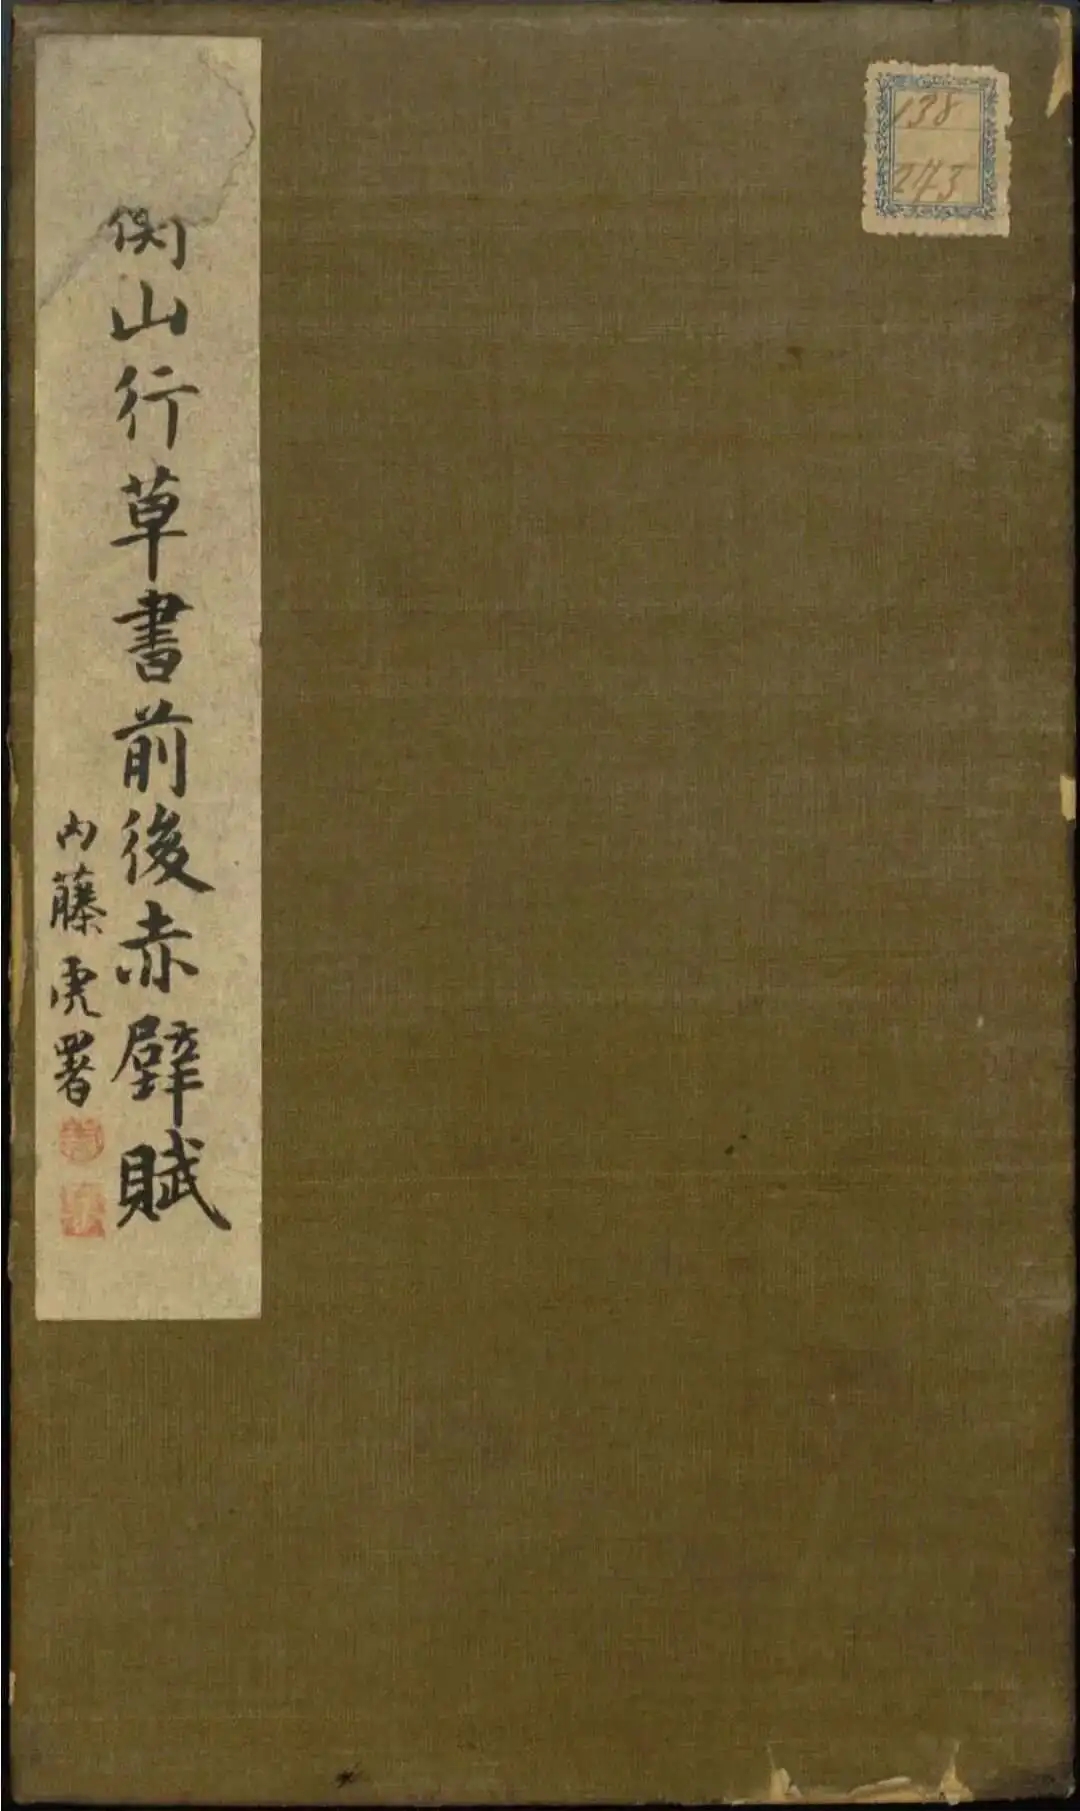 138
衡山行草書前後赤壁賦
内藤虎署